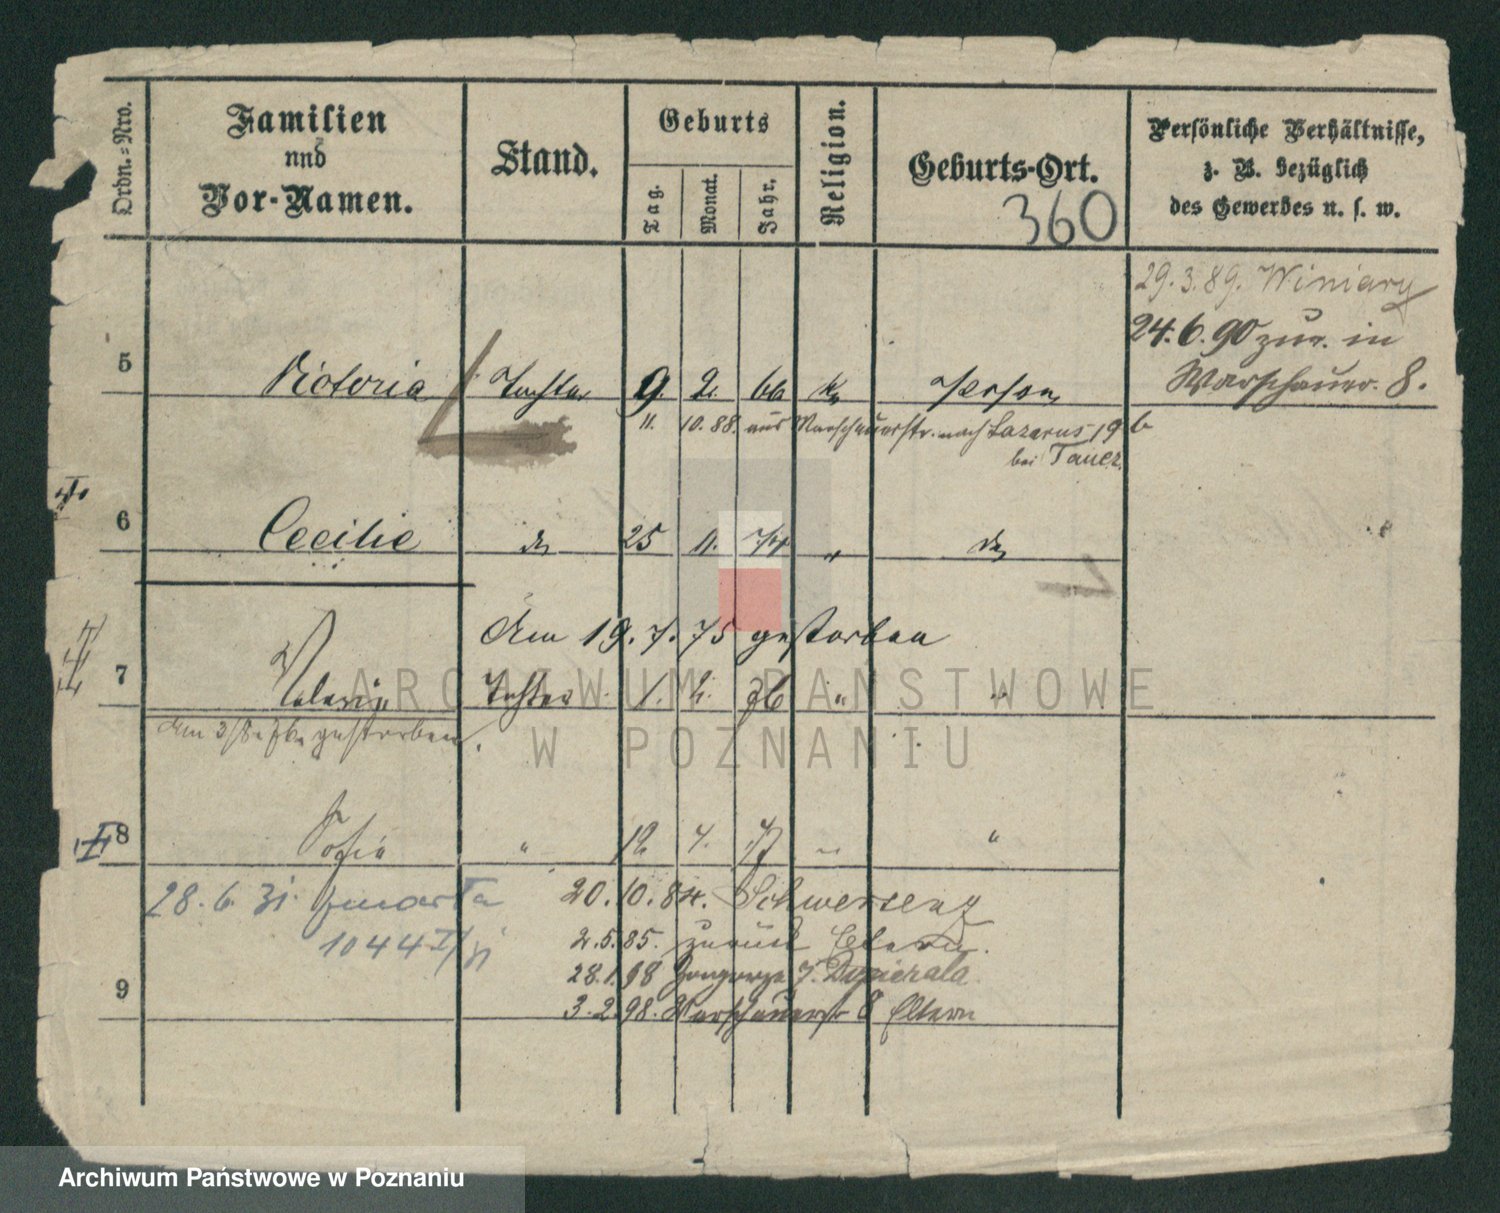 Ordn.-Nro.
Familien
und
Vor-Namen.
Stand.
Geburts
Tag.
Monat.
Jahr.
Religion.
Geburts-Ort.
360
Persönliche Verhältnisse,
z. B. bezüglich
des Gewerbes u. s. w.
29.3.89. Winiary
24.6.90 zur. in
Warschauer. 8.
5 Victoria Tochter 9. 2. 66 k. Posen
11. 10.88. aus Warschauerstr. nach Lazarus 19 b
bei Tauer.
6 Cecilie do 25 11. " do
Am 19.7.75 gestorben
7 Valerie Tochter 1. 2. 76 " "
Am 3/8. 76. gestorben.
II 8 Sofia " 12 4. "
28.6.31. zmarła 20.10.84. Schwersenz
1044 2.5.85. zurück Eltern.
28.1.98 J. Dopierala
9 3.2.98. Warschauerstr 8 Eltern
ARCHIWUM PAŃSTWOWE
W POZNANIU
Archiwum Państwowe w Poznaniu